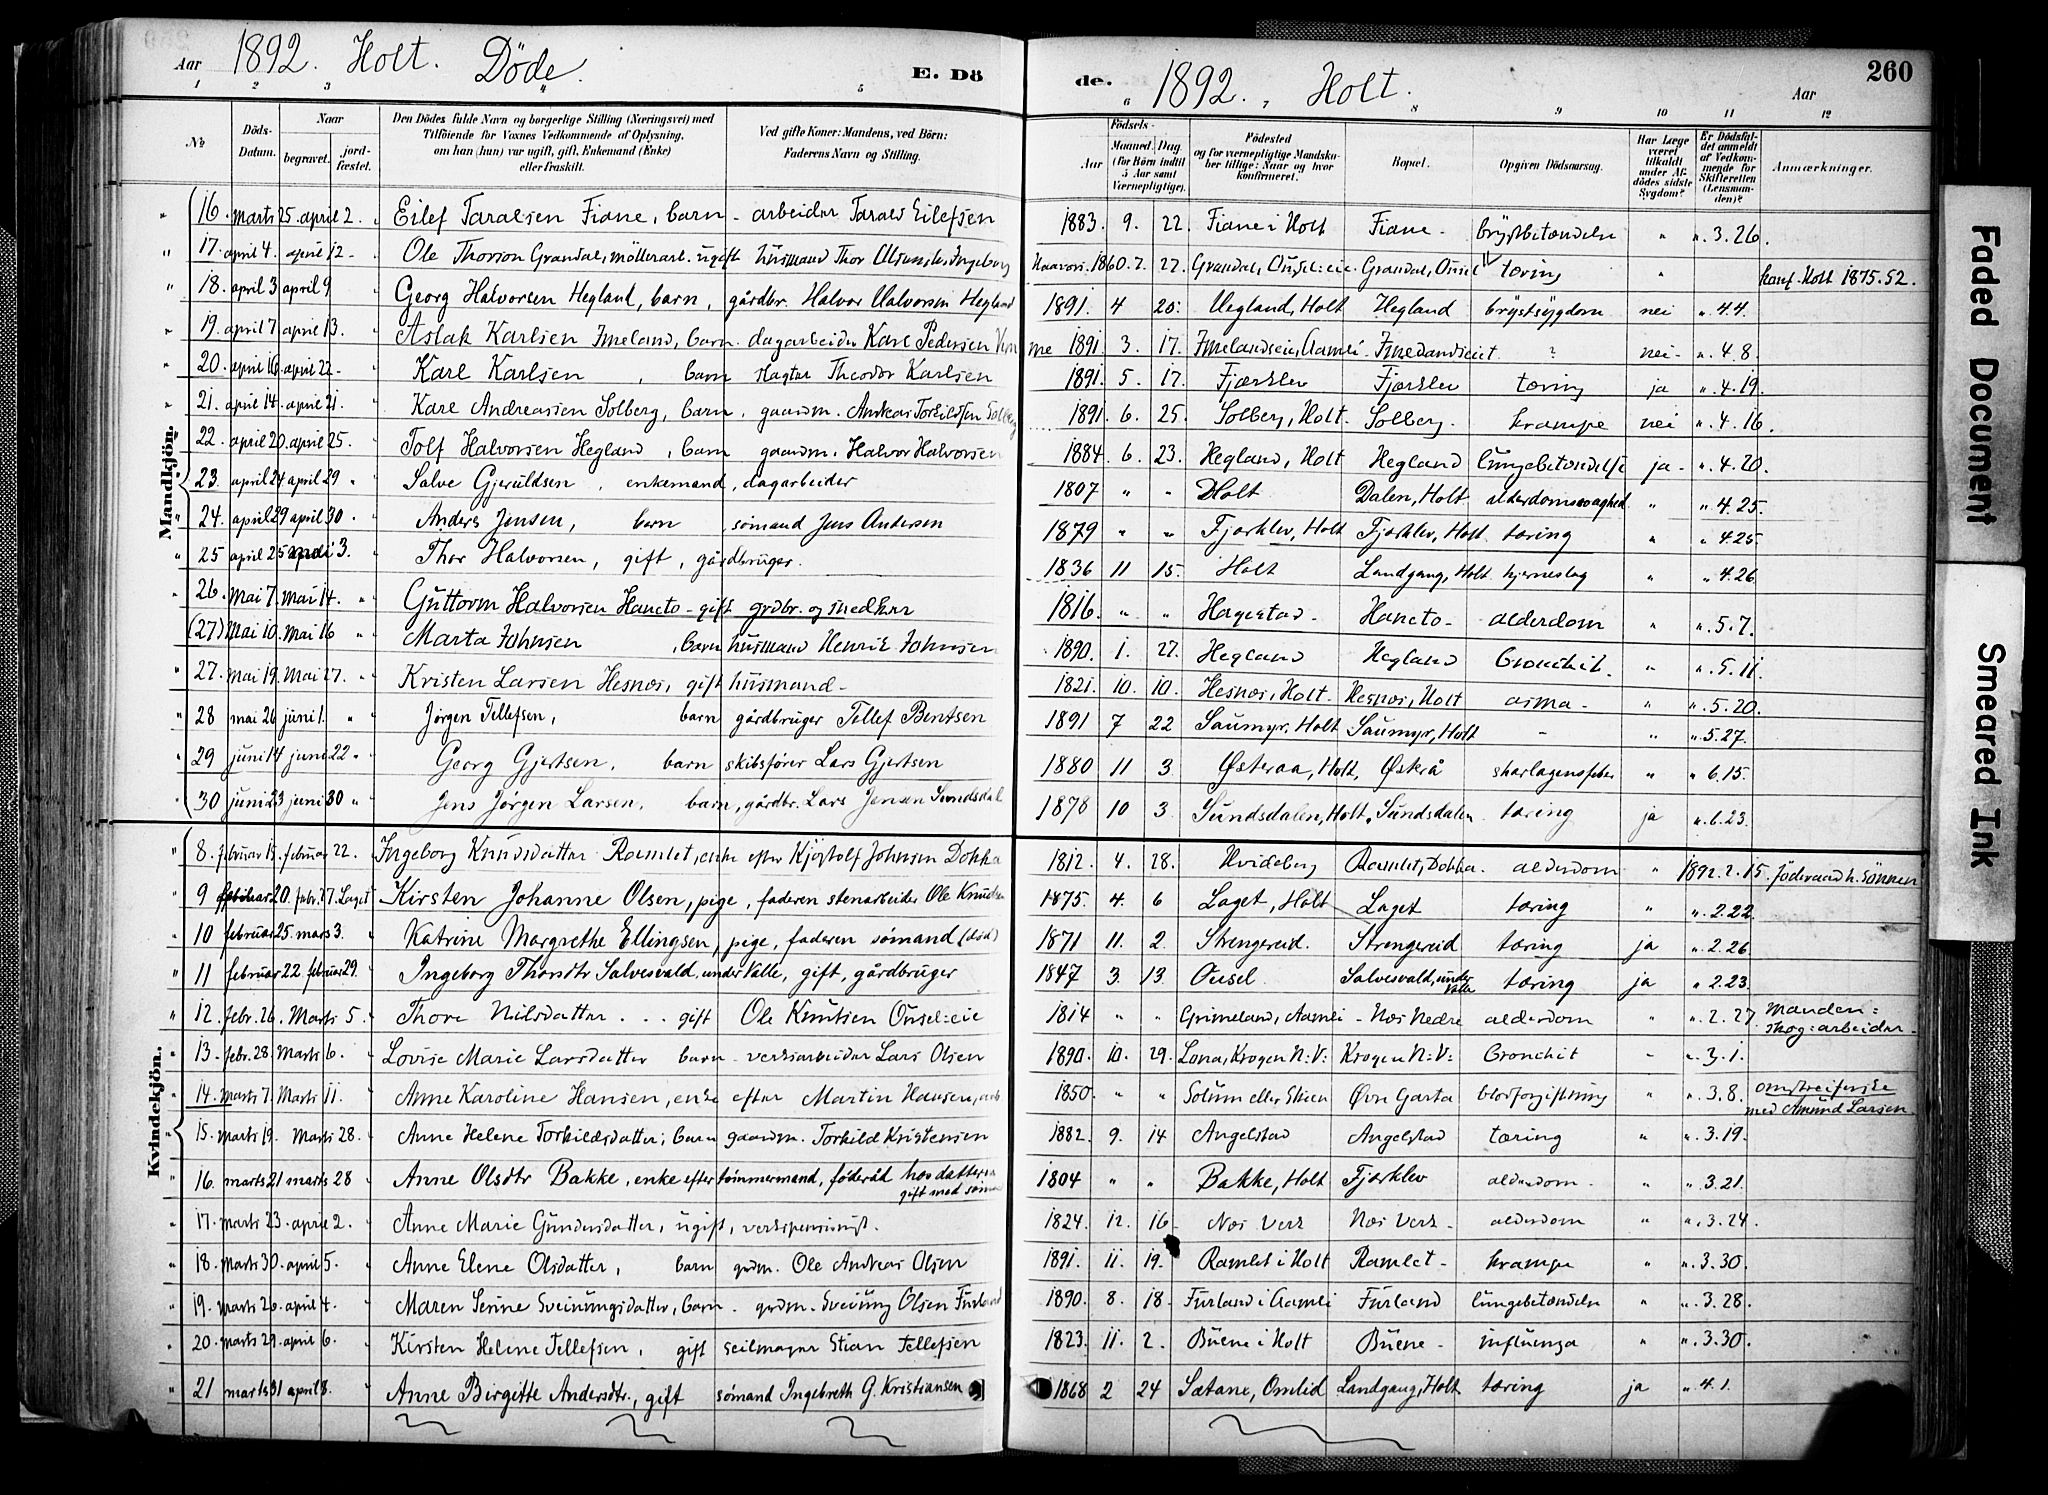 Aar 1892. Holt. Döde. E. Dö
1 2 3 4 5
№ Döds-Datum. Naar begravet. jord-fæstet. Den Dödes fulde Navn og borgerlige Stilling (Næringsvei) med Tilföiende for Voxnes Vedkommende af Oplysning, om han (hun) var ugift, gift, Enkemand (Enke) eller fraskilt. Ved gifte Koner: Mandens, ved Börn: Faderens Navn og Stilling.
Mandkjön.
16. marts 25. april 2. Eilef Taralsen Fiane, barn - arbeider Tarald Eilefsen
17. april 4 april 12 - Ole Thorson Grandal, möllerarb. ugift husmand Thor
18. april 3 april 9 Georg Halvorsen Hegland, barn, gårdbr. Halvor Halvorsen Hegland
19. april 7 april 13. Aslak Karlsen Imeland, barn - dagarbeider Karl Pedersen
20. april 16 april 22 - Karl Karlsen, barn slagter Theodor Karlsen
21. april 14. april 21. Karl Andreassen Solberg, barn, gaardm. Andreas Torkildsen Solberg
22. april 20. april 25. Tolf Halvorsen Hegland, barn gaardm. Halvor Halvorsen
23. april 24 april 29 " Salve Gjeruldsen, enkemand, dagarbeider
24. april 29 april 30 . Anders Jensen, barn, sömand Jens Andersen
25 april 25 mai 3. Thor Halvorsen, gift, gårdbruger.
26. Mai 7. Mai 14. " Guttorm Halvorsen Haneto - gift grdbr. og snedker
(27) Mai 10. Mai 16 " Marta Johnsen, barn husmand Henrik Johnsen
27. mai 19. Mai 27. " Kristen Larsen Hesnæs, gift husmand -
28 mai 26 juni 1. " Jørgen Tellefsen, barn gårdbruger Tellef Bentsen
29 juni 14 juni 22 " Georg Gjertsen, barn skibsfører Lars Gjertsen
30 juni 23 juni 30 " Jens Jørgen Larsen, barn, gårdbr. Lars Jensen Sundsdal
Kvindekjön.
8. februar 15. februar 22. Ingeborg Knudsdatter Ramlet, enke efter Kjøstolf Johnsen Dokka
9 februar 20. febr. 27. Laget Kirsten Johanne Olsen, pige, faderen stenarbeider Ole Knudsen
10 februar 25. mars 3. Katrine Margrethe Ellingsen, pige, faderen sömand (död)
11 februar 22. februar 29. Ingeborg Thorsdtr Salvesvald, under Valle, gift, gårdbruger
12. febr. 26. Marts 5. Thore Nilsdatter . . . gift Ole Knutsen Ousel:eie
13. febr. 28. Marts 6. Lovise Marie Larsdatter barn - verksarbeider Lars Olsen
14. marts 7. Marts 11. Anne Karoline Hansen, enke efter Martin Hansen, arb
15. marts 19. Marts 28. Anne Helene Torkildsdatter, barn gaardm. Torkild Kristensen
16. marts 21 marts 28 Anne Olsdtr Bakke, enke efter tömmermand, föderåd hos datteren
gift med sömand
17. marts 23. april 2. Anne Marie Gundersdatter, ugift, verkspensionist.
18. Marts 30. april 5. Anne Elene Olsdatter, barn grdm. Ole Andreas Olsen
19. Marts 26. april 4. Maren Serine Sveinungsdatter, barn - grdm. Sveinung Olsen Furland
20. marts 29. april 6. Kirsten Helene Tellefsen, gift seilmager Stian Tellefsen
21 marts 31 april 8. Anne Birgitte Andersdtr., gift sömand Ingebreth G. Kristiansen
de. 1892. Holt. Aar 260
6 7 8 9 10 11 12
Födsels-Aar Maaned. Dag. (for Börn indtil 5 Aar samt Værnepligtige). Födested og for værnepligtige Mandskaber tillige: Naar og hvor konfirmeret. Bopæl. Opgiven Dödsaarsag. Har Læge været tilkaldt under Afdödes sidste Sygdom? Er Dödsfaldet anmeldt af Vedkommende for Skifteretten (Lensmanden)? Anmærkninger.
1883. 9. 22. Fiane i Holt Fiane - brystbetændelse " ". 3. 26.
1860. 7. 27. Grandal, Ousel:eie. Grandal, Ousel tæring " konf. Holt 1875. 52.
1891. 4 25. Hegland, Holt Hegland brystsygdom nei ". 4. 4.
1891. 3. 17. Imelandseie, Aamli - Imelandseiet ? nei - ". 4. 8.
1891. 5. 17. Fjærklev Fjærklev tæring ja ". 4. 19.
1891. 6. 25. Solberg, Holt. Solberg. krampe nei ". 4. 16.
1884. 6. 23. Hegland, Holt Hegland lungebetændelse ja - ". 4. 20.
1807 " " Holt Dalen, Holt alderdomssvaghed " ". 4. 25.
1879 " " Fjærklev, Holt Fjærklev, Holt tæring " ". 4. 25.
1836 11 15. Holt Landgang, Holt hjerneslag " ". 4. 26.
1816. " " Hagestad - Haneto - alderdom " ". 5. 7.
1890. 1. 27. Hegland Hegland bronchit. " ". 5. 11.
1821. 10. 10. Hesnæs, Holt. Hesnæs, Holt asma - " ". 5. 20.
1891 7 22 Saumyr, Holt Saumyr, Holt - " ". 5. 27.
1880 11 3 Østeraa, Holt, Østerå skarlagensfeber " ". 6. 15.
1878 10 3 Sundsdalen, Holt, Sundsdalen tæring ja ". 6. 23.
1812. 4. 28. Hvideberg Ramlet, Dokka - alderdom " 1892. 2. 15. föderaad h. sönnen
1875. 4. 6 Laget, Holt Laget tæring " ". 2. 22.
1871 11. 2. Strengereid. Strengereid tæring ja ". 2. 26
1847 3. 13. Ousel Salvesvald, under Valle tæring ja ". 2. 23.
1814 " " Grimeland, Aamli - Næs Nedre alderdom " ". 2. 27 Manden: skog:arbeider -
1890. 10. 29. Lona, Krogen N:V: Krogen N:V: bronchit - ". 3. 1.
1850. " " Solum eller Skien Øvn Garta blodforgiftning " ". 3. 8. omstreiferske med Amund Larsen
1882. 9. 14 Angelstad Angelstad tæring " ". 3. 19.
1804 " " Bakke, Holt Fjærklev alderdom - " ". 3. 21.
1824. 12. 16 - Næs Verk Næs Verk - alderdom " ". 3. 24.
1891. 11. 19. Ramlet i Holt Ramlet - krampe " ". 3. 30.
1890. 8. 18. Furland i Aamli Furland lungebetændelse " ". 3. 28.
1823. 11. 2. Buene i Holt Buene - influenza " ". 3. 30.
1868 2 24 Sætane, Omlid Landgang, Holt tæring ja ". 4. 1.
Faded Document
Smeared Ink